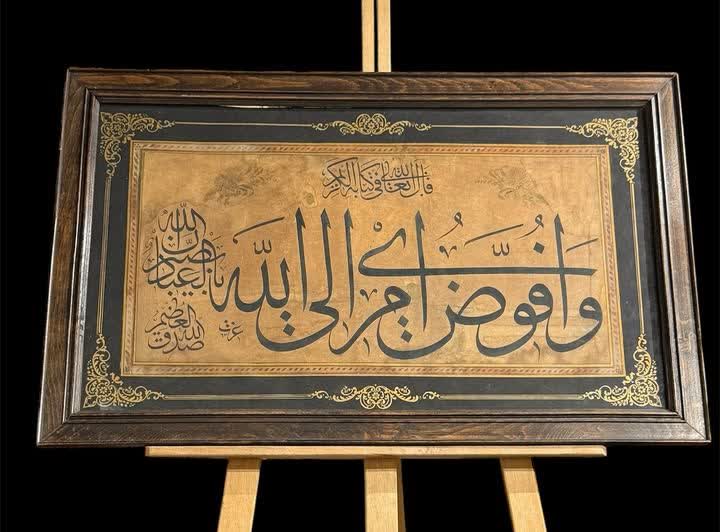 قال الله تعالى في كتابه الكريم
وافوّض امري الى الله
ان الله بصير بالعباد
صدق الله العظيم
عزت